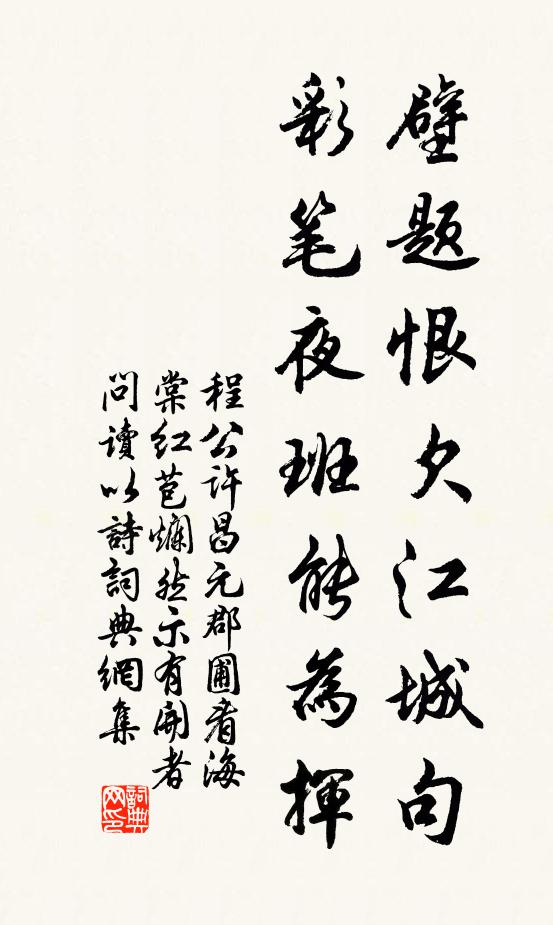 壁題恨欠江城句
彩笔夜班能為揮
程公許昌元郡圃看海
棠紅苞爛然示有開者
問讀以詩詞典網集
詞典网印